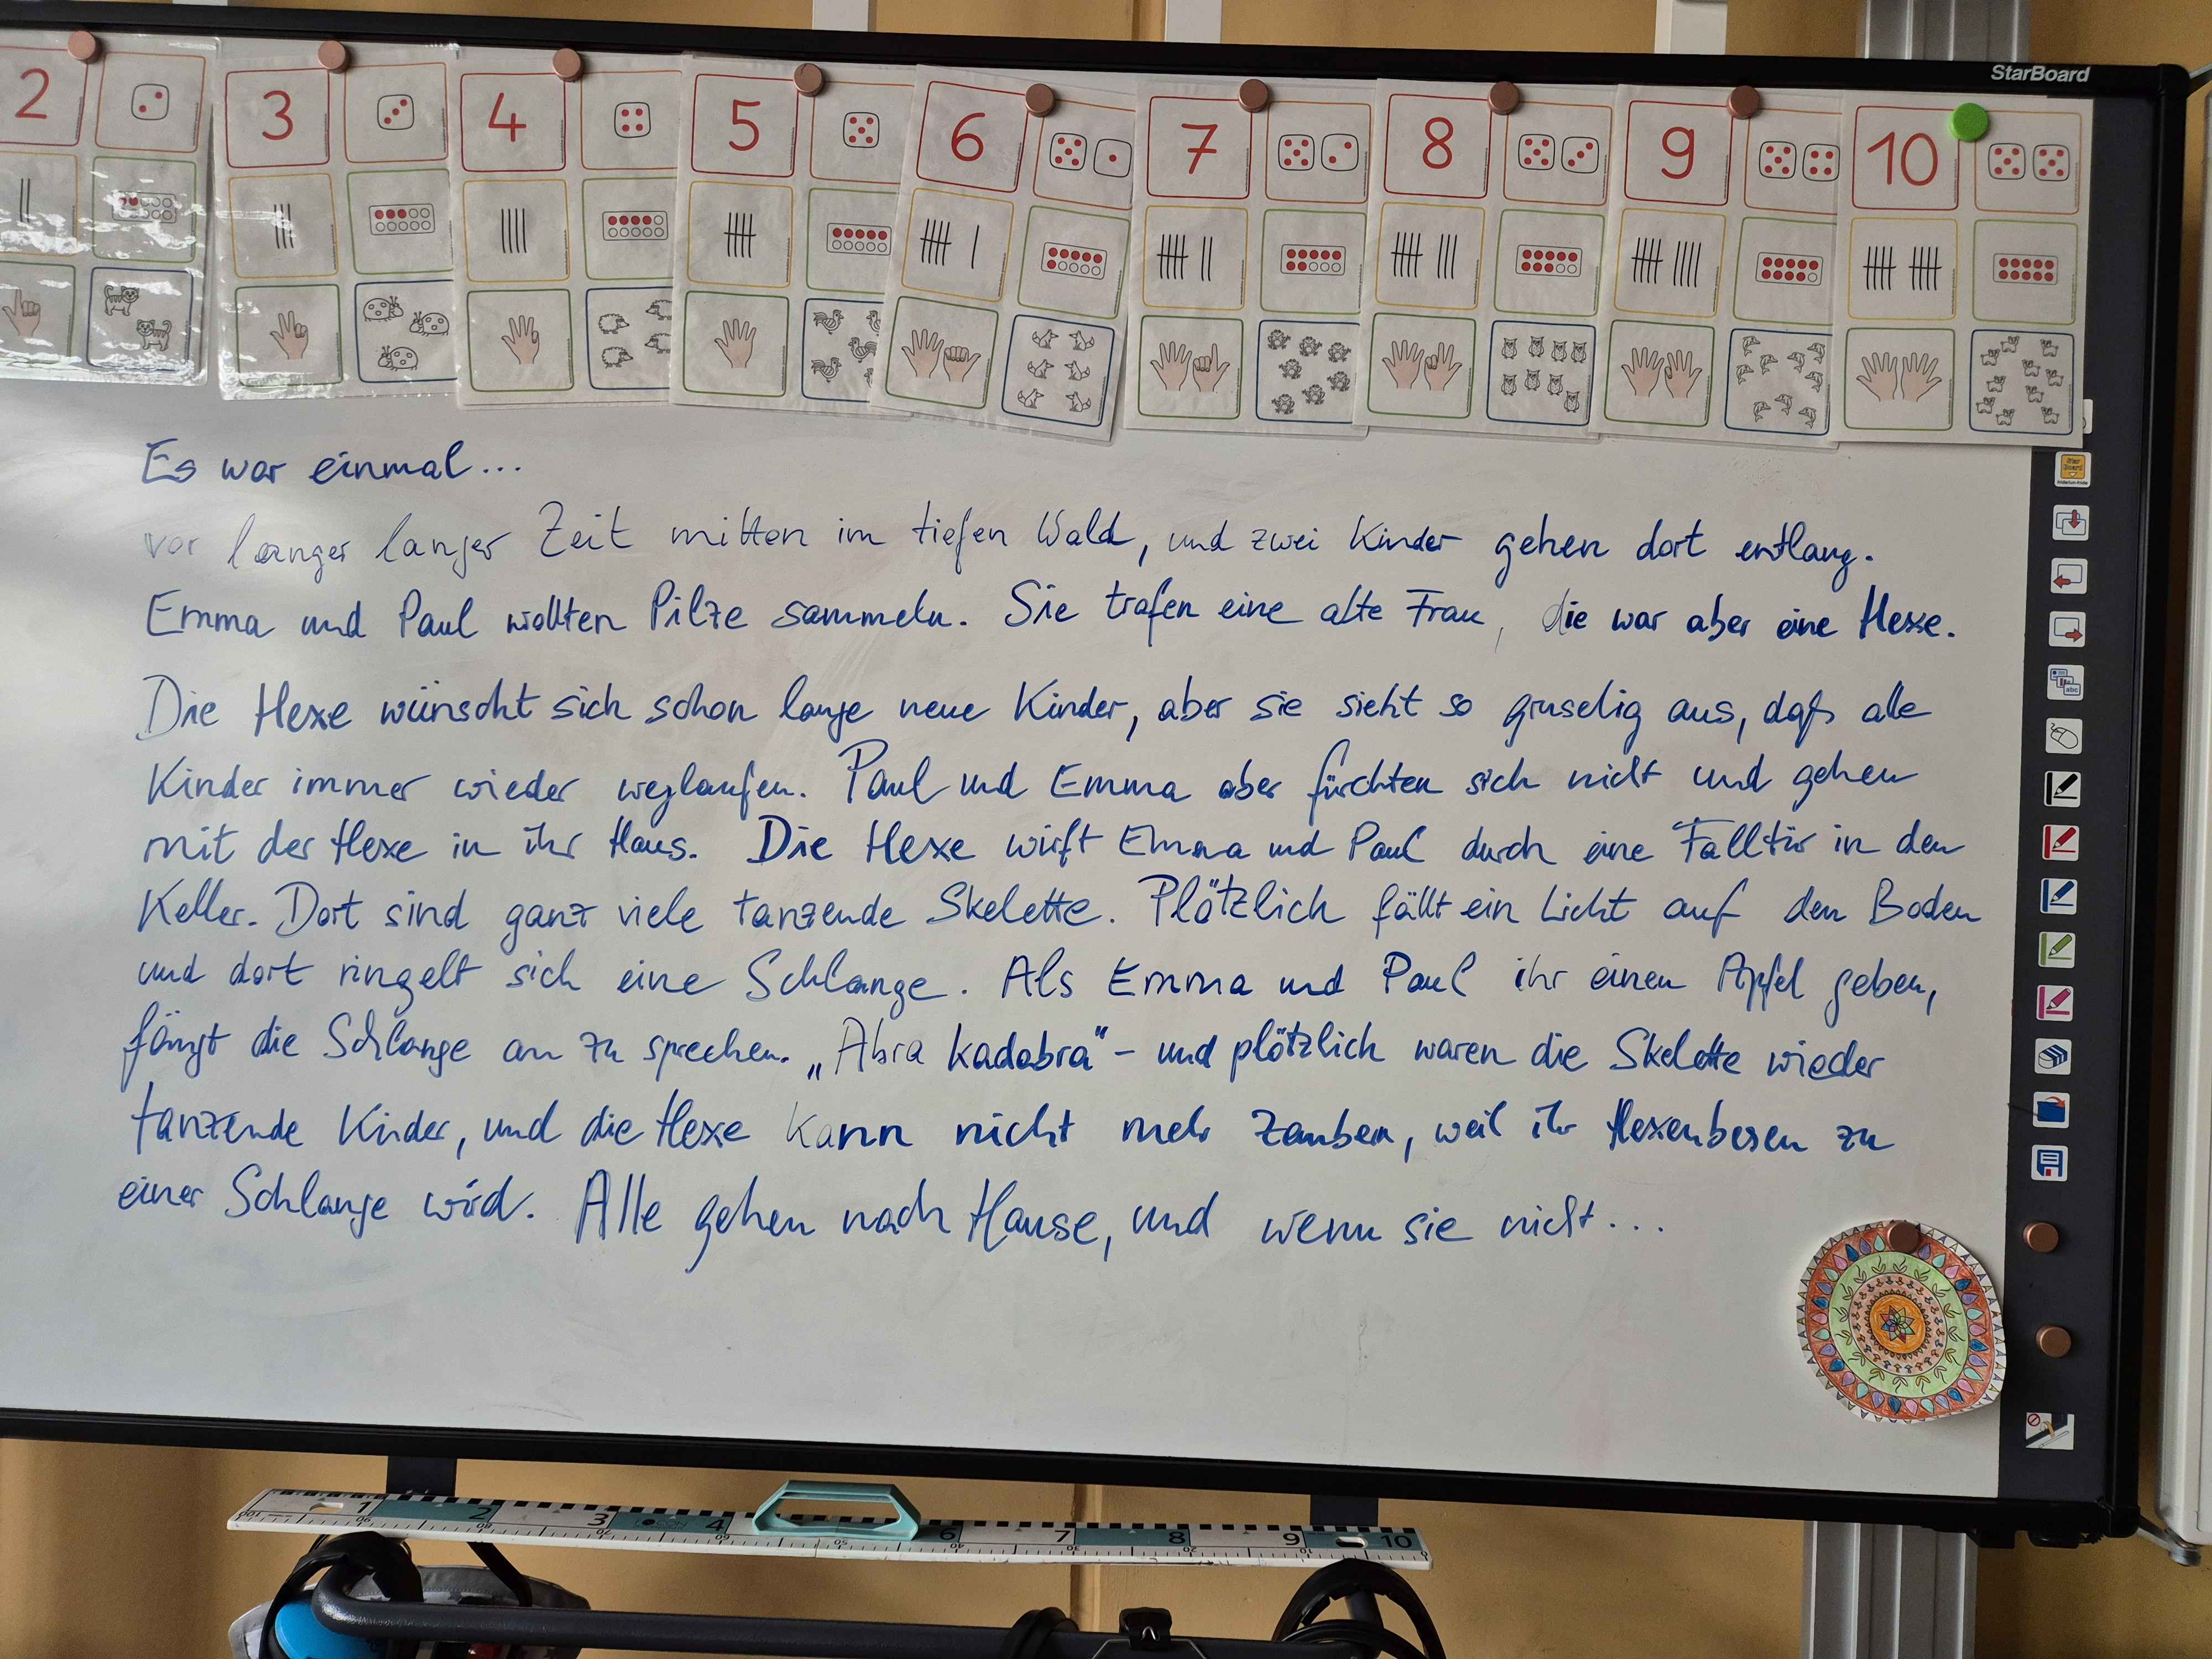 StarBoard
2 3 4 5 6 7 8 9 10
Es war einmal...
vor langer langer Zeit mitten im tiefen Wald, und zwei Kinder gehen dort entlang.
Emma und Paul wollten Pilze sammeln. Sie trafen eine alte Frau, die war aber eine Hexe.
Die Hexe wünscht sich schon lange neue Kinder, aber sie sieht so gruselig aus, daß alle
Kinder immer wieder weglaufen. Paul und Emma aber fürchten sich nicht und gehen
mit der Hexe in ihr Haus. Die Hexe wirft Emma und Paul durch eine Falltür in den
Keller. Dort sind ganz viele tanzende Skelette. Plötzlich fällt ein Licht auf den Boden
und dort ringelt sich eine Schlange. Als Emma und Paul ihr einen Apfel geben,
fängt die Schlange an zu sprechen. „Abra kadabra" - und plötzlich waren die Skelette wieder
tanzende Kinder, und die Hexe kann nicht mehr zaubern, weil ihr Hexenbesen zu
einer Schlange wird. Alle gehen nach Hause, und wenn sie nicht...
1 2 3 4 6 7 8 9 10